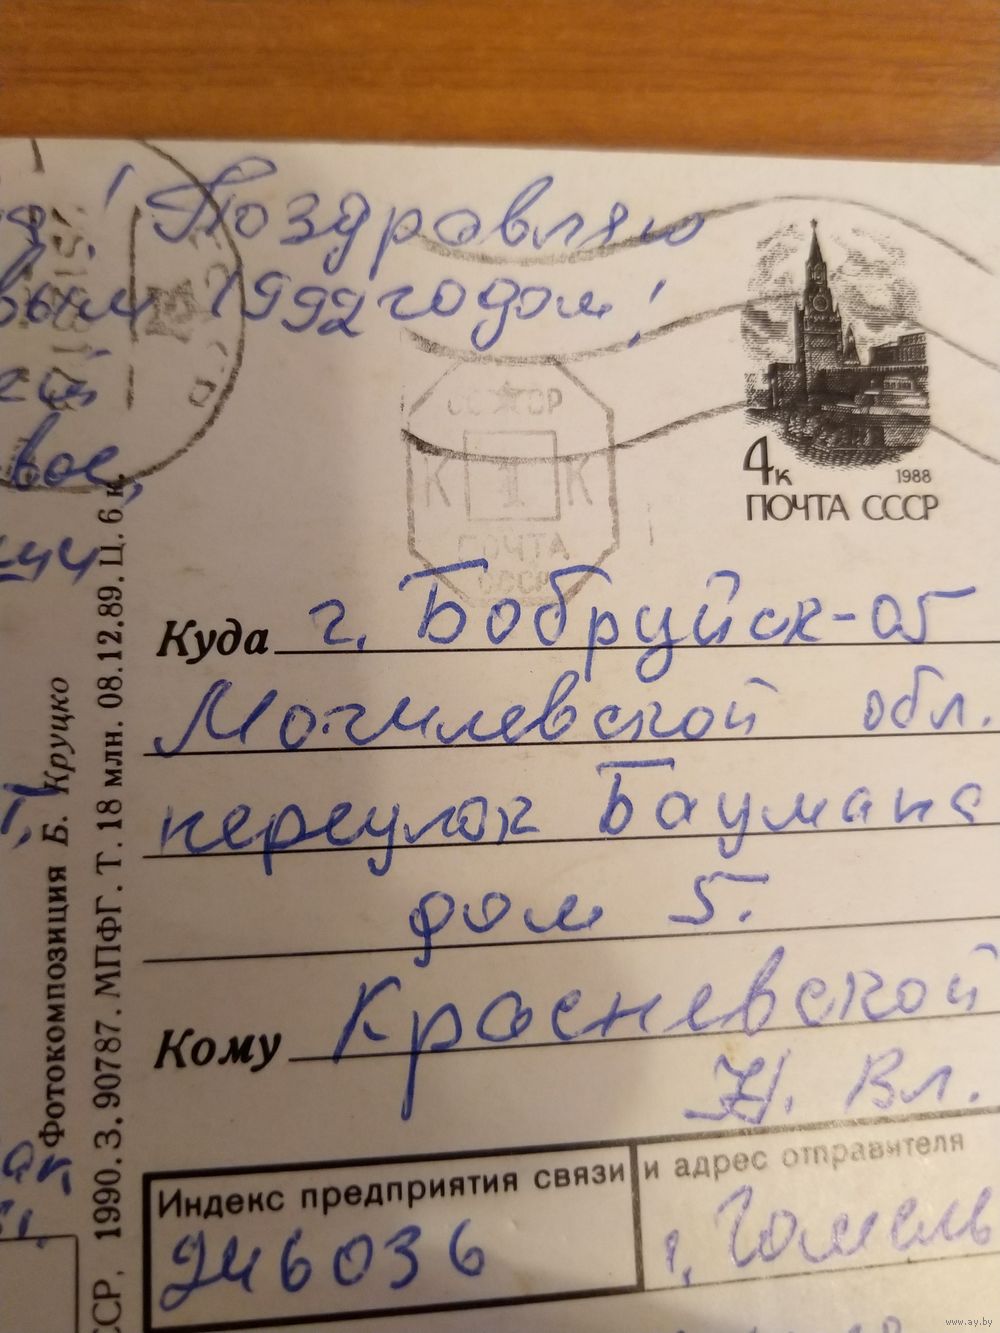 ! Поздравляю
вым 1992 годом!
вое,
4к
1988
ПОЧТА СССР
К 1 К
ПОЧТА
СССР
Куда г. Бобруйск-05
Могилевской обл.
переулок Баумана
дом 5.
Кому Красневской
Н. Вл.
Индекс предприятия связи и адрес отправителя
246036
г. Гомель
Фотокомпозиция Б. Круцко
ССР. 1990. З. 90787. МПФГ. Т. 18 млн. 08.12.89. Ц. 6 к.
www.ay.by